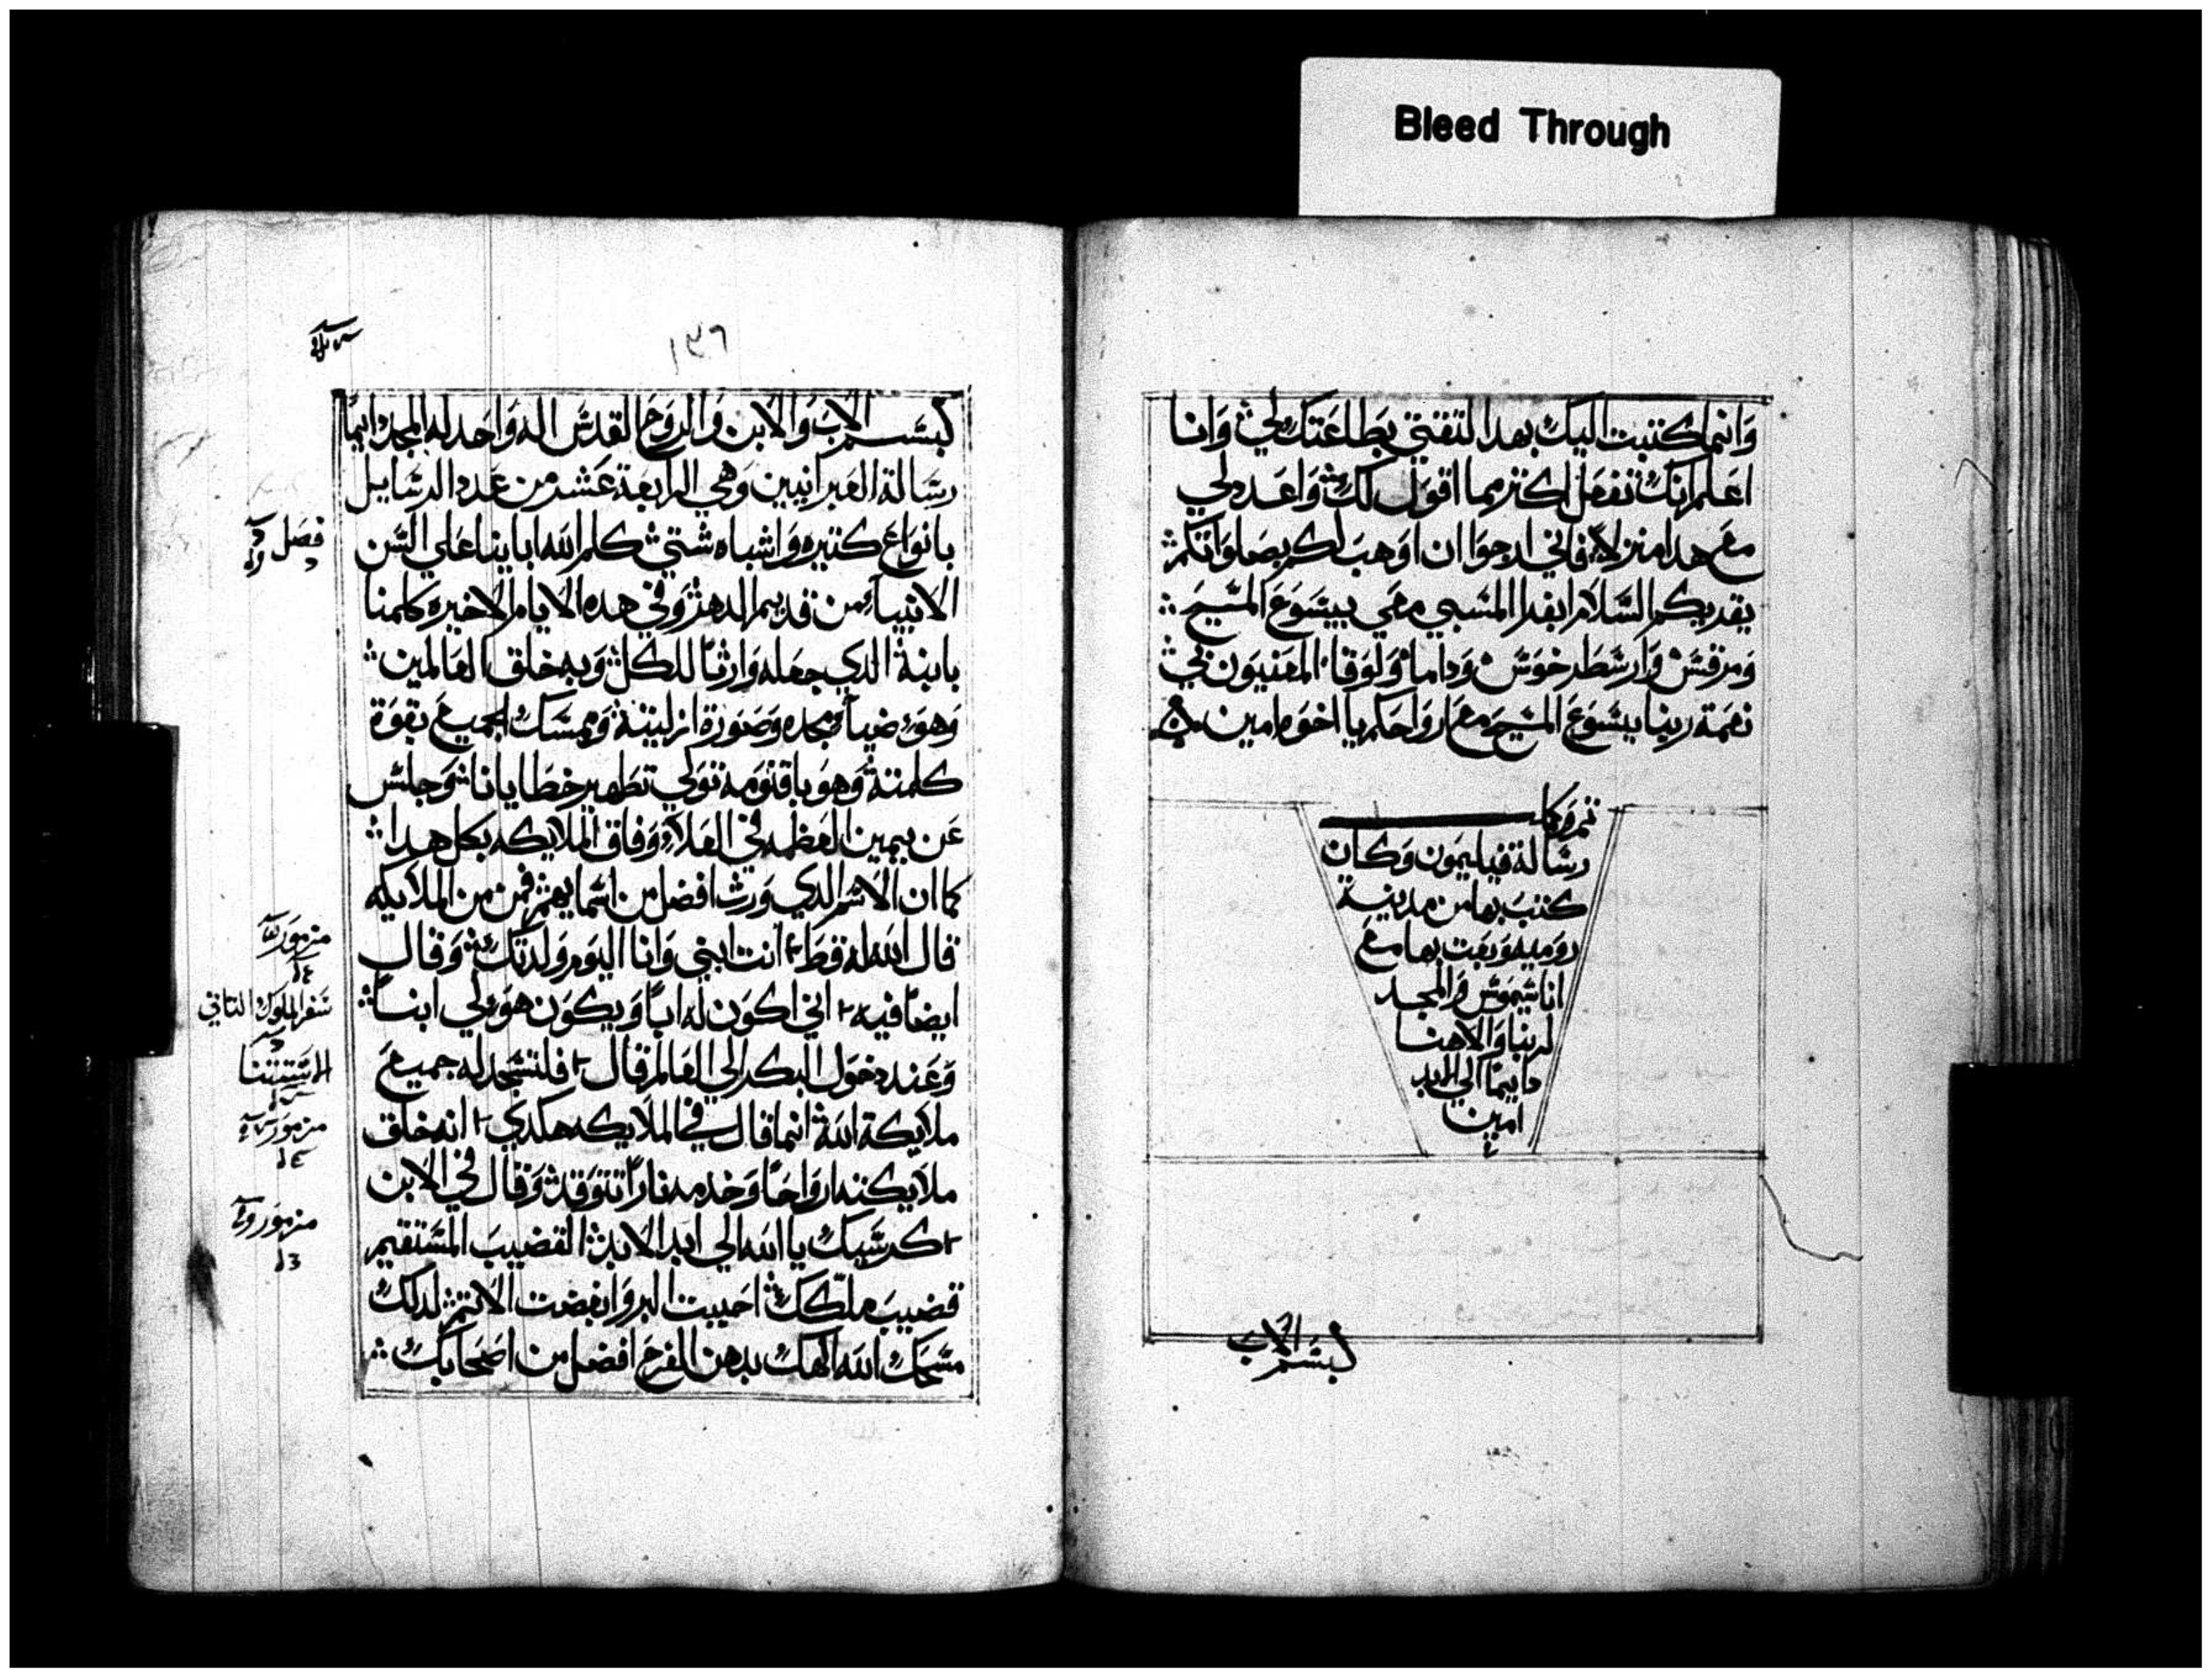 Bleed Through
وانما كتبت اليك بهدا لتقتي بطاعتك لي وانا
اعلم انك تفعل اكتر مما اقول لك واعد لي
مع هدا منزلا فاني ارجوا ان اوهب لكم بصلواتكم
يقديكم السلام ابفرا المسبي معي بيسوع المسيح
ومرقس وارسطرخوس وداما ولوقا المعنيون لي
نعمة ربنا يسوع المسيح مع ارواحكم يا اخوه امين
تم وكمل
رسالة فيليمون وكان
كتب بها من مدينة
روميه وبعت بها مع
اناشيموس والمجد
لربنا والاهنا
دايما الي الابد
امين
بسم الاب
١٣٦
بسم الاب والابن والروح القدس اله واحد له المجد دايما
رسالة العبرانيين وهي الرابعة عشر من عدد الرسايل
بانواع كتيره واشباه شتي كلم الله ابايناعلي السن
الانبياء من قديم الدهر وفي هده الايام الاخيره كلمنا
بابنة الدي جعله وارثا للكل وبه خلق العالمين
وهو ضياء مجده وصورة ازليتة وممسك الجميع بقوة
كلمتة وهو باقنومه تولي تطهير خطايانا وجلس
عن يمين العظمه في العلاء وفاق الملايكه بكل هدا
كما ان الاسم الدي ورث افضل من اسمايهم فمن من الملايكه
قال الله له قط انت ابني وانا اليوم ولدتك وقال
ايضا فيه اني اكون له ابا ويكون هو لي ابنا
وعند دخول البكر الي العالم قال فلتسجد له جميع
ملايكة الله انما قال في الملايكه هكدي انه خلق
ملايكته ارواحا وخدمه نارا تتوقد وقال في الابن
كرسيك يا الله الي ابد الابد القضيب المستقيم
قضيب ملكك احببت البر وابغضت الاتم لدلك
مسحك الله الهك بدهن الفرح افضل من اصحابك
فصل
مزمور
سفر الملوك التاني
مزمور
مزمور